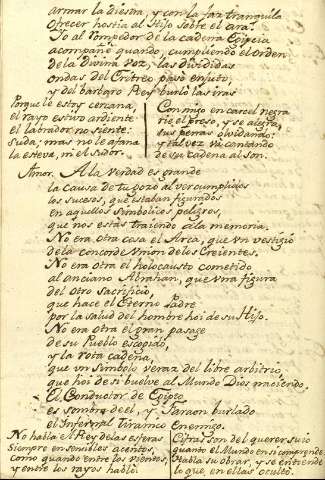 armar la diestra, y con la faz tranquila
Ofrecer hostia al Hijo sobre el ara.
Io al rompedor de la cadena Egipcia
acompañé quando, cumpliendo el orden
de la Divina voz, las divididas
ondas del Eritreo pasó enjuto,
y del barbaro Rey burló las iras
Porque le estoy cercana,
el rayo estivo ardiente
el labrador no siente:
Suda; mas no le afana
la esteva, ni el sudor.
Conmigo en carcel negra
rie el preso, y se alegra,
sus penas olvidando;
y tal vez va cantando
de su cadena al son.
Amor. A la verdad es grande
la causa de tu gozo al ver cumplidos
los sucesos, que estaban figurados
en aquellos simbolicos peligros,
que nos estás traiendo a la memoria.
No era otra cosa el Arca, que un vestigio
de la concorde Union de los Creientes.
No era otra el holocausto cometido
al anciano Abrahan, que una figura
del otro sacrificio,
que hace el Eterno Padre
por la salud del hombre hoi de su Hijo.
No era otra el gran pasage
de su Pueblo escogido,
y la rota cadena,
que un simbolo veraz del libre arbitrio
que hoi de si buelve al Mundo Dios naciendo.
El Conductor de Egipto
es sombra de el, y Faraon burlado
el Infernal Tiranico Enemigo.
No habla el Rey de las esferas
Siempre en sensibles acentos,
como quando entre los vientos,
y entre los rayos habló.
Cifras son del querer suio
quanto el Mundo en si comprende
Habla su obrar, y se entiende
lo que en ellas ocultó.